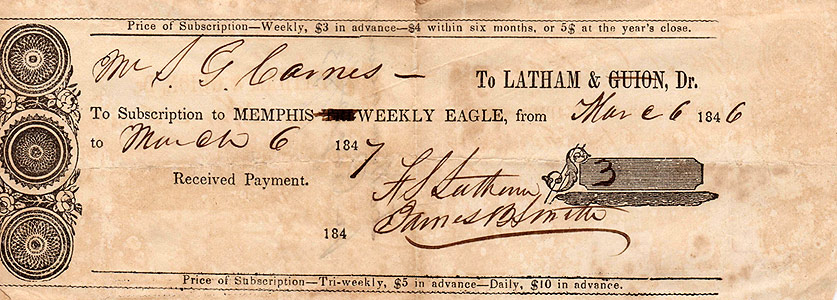 Price of Subscription—Weekly, $3 in advance—$4 within six months, or 5$ at the year's close.
Mr S. G. Carnes — To LATHAM & GUION, Dr.
To Subscription to MEMPHIS TRI-WEEKLY EAGLE, from March 6 1846
to March 6 1847
Received Payment. F S Latham 3
James B Smith
184
Price of Subscription—Tri-weekly, $5 in advance—Daily, $10 in advance.